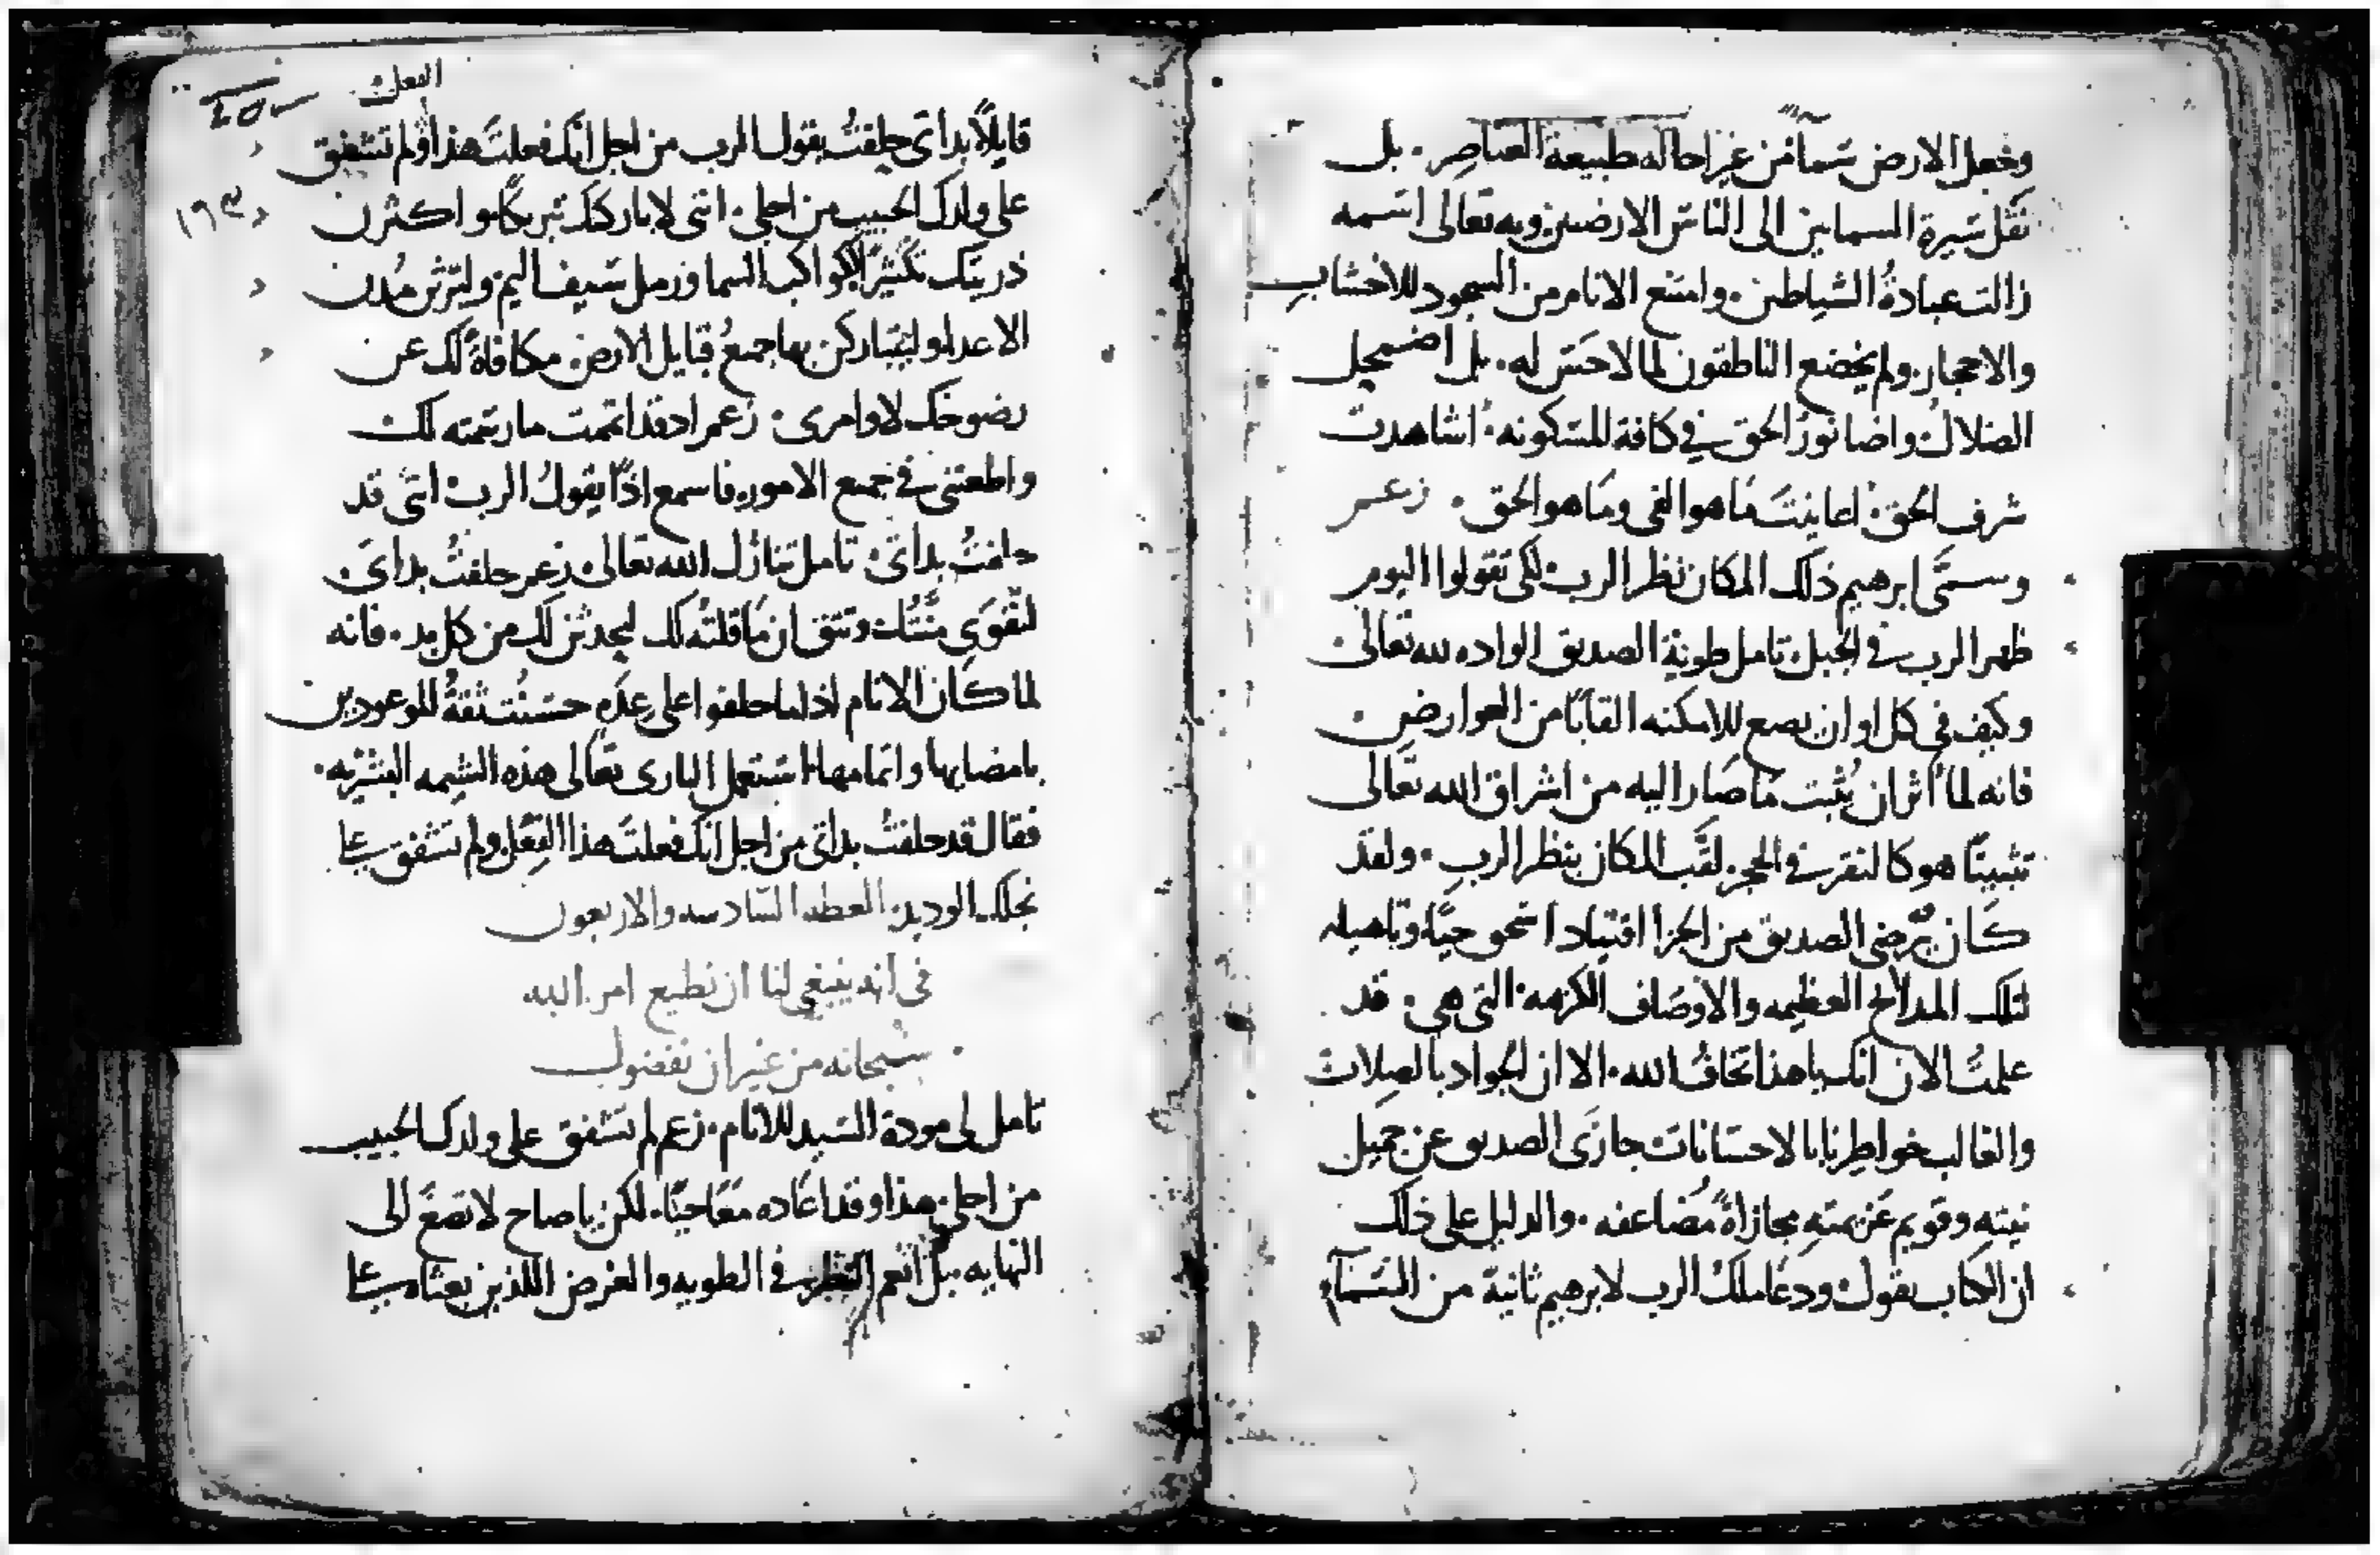 وجعل الارض سماً من غير احاله طبيعة العناصر . بل
نقل سيرة السمايين الى الناس الارضيين وبه تعالى اسمه
زالت عبادةُ الشياطين . وامتنع الانام من السجود للاخشاب
والاحجار . ولم يخضع الناطقون لما لا حس له . بل اضمحل
الضلالُ واضا نورُ الحق في كافة المسكونه . اشاهدت
شرف الحق . اعاينتَ ما هو الفى وما هو الحق . زعم
وسمَّى ابرهيم ذلك المكان نظر الرب لكى تقولوا اليوم
ظهر الرب في الجبل تامل طوية الصديق الواده لله تعالى
وكيف فى كل اوان يضع للامكنه القابًا من العوارض
فانه لما اثر ان يُثبت ما صار اليه من اشراق الله تعالى
تثبيتًا هو كالنقر في الحجر لقَّب المكان بنظر الرب . ولقد
كان يُرضى الصديق من الجزا اقتياد اسحق حيًا وتاهيله
لتلك المدايح العظيمه والاوصاف الكريمه التى هي . قد
علمتُ الان انك يا هذا تخافُ الله . الا ان الجواد بالصلات
والغالب خواطرنا بالاحسانات جازَى الصديق عن جميل
نيته وقويم عزيمته مجازاةً مُضاعفه . والدليل على ذلك
ان الكتاب يقول ودعا ملكُ الرب لابرهيم ثانية من السمآء
قايلًا بداتى حلفتُ يقول الرب من اجل انك فعلتَ هذا ولم تشفق
على ولدك الحبيب من اجلي . اننى لاباركنك تبريكًا واكثرن
ذريتك تكثيرًا ككواكب السما ورمل سيف اليم وليرثن مُدن
الاعدا وليتباركن بها جميعُ قبايل الارض مكافاةً لك عن
رضوخك لاوامرى . زعم اد قد اتممت ما رسمته لك
واطعتنى في جميع الامور فاسمع اذًا يقولُ الرب اننى قد
حلفتُ بداتى . تامل تنازل الله تعالى زعم حلفتُ بداتى
لتقوَى وتثق ان ما قلته لك ليحدثن لك من كل بد . فانه
لما كان الانام اذا ما حلفوا على عدَهِ حسنُت ثقةُ الموعودين
بامضايها واتمامها استعمل البارى تعالى هذه الشيمه البشريه .
فقال قد حلفتُ بداتى من اجل انك فعلتَ هذا الفعل ولم تشفق على
نجلك الوديد . العظه السادسه والاربعون
فى انه ينبغي لنا ان نطيع امر الله
سبحانه من غير ان نفضول
تامل لى مودة السيد للانام . زعم لم تشفق على ولدك الحبيب
من اجلي . هذا وقد اعاده معَا حيًا . لكن يا صاح لا تصغَ الى
النهايه . بل انعم النظر في الطويه والغرض اللذين بعثاه على